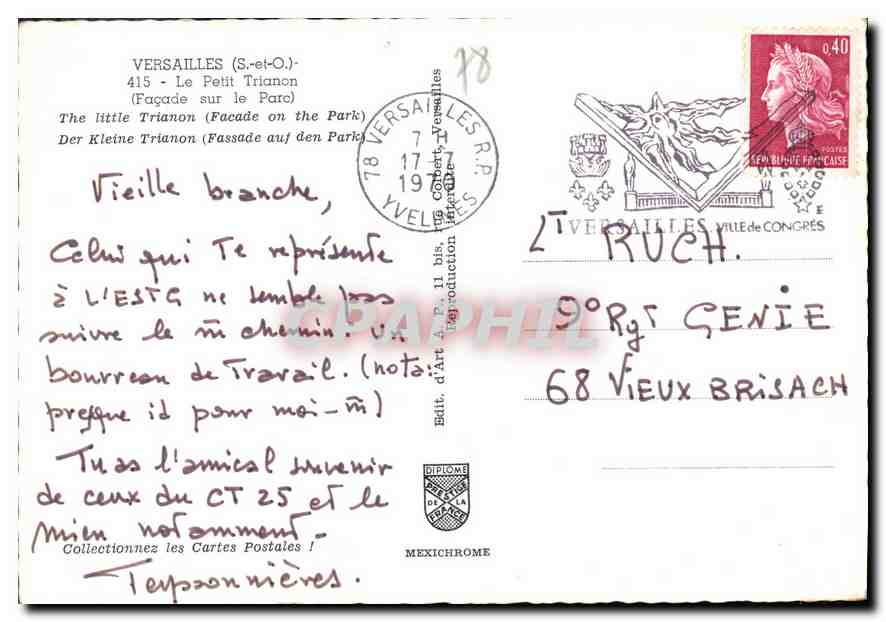 VERSAILLES (S.-et-O.)-
415 - Le Petit Trianon
(Façade sur le Parc)
The little Trianon (Facade on the Park)
Der Kleine Trianon (Fassade auf den Park)
Vieille branche,
Celui qui Te représente
à L'ESTG ne semble pas
suivre le m̄ chemin: un
bourreau de Travail. (nota:
presque id pour moi-m̄)
Tu as l'amical souvenir
de ceux du CT 25 et le
mien notamment-
Teyssonnières.
Collectionnez les Cartes Postales !
78
78 VERSAILLES R.P.
17-7
1970
YVELINES
Edit. d'Art A. P., 11 bis, rue Colbert, Versailles
Reproduction interdite
DIPLOME
PRESTIGE
DE LA
FRANCE
MEXICHROME
0,40
POSTES
REPUBLIQUE FRANÇAISE
VERSAILLES VILLE de CONGRÈS
LT RUCH.
9° Rgt GENIE
68 VIEUX BRISACH
CPAPHIL